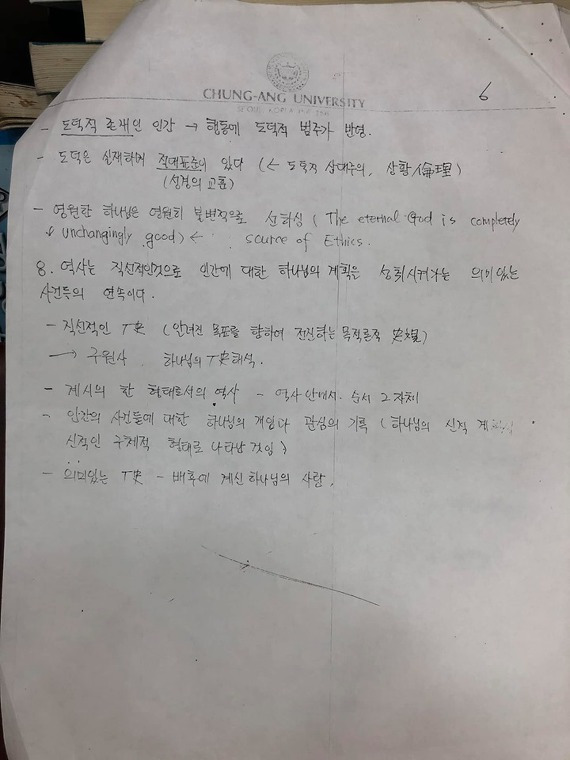 6
CHUNG-ANG UNIVERSITY
SEOUL KOREA
- 도덕적 존재인 인간 → 행동에 도덕적 범주가 반영.
- 도덕은 실재하며 절대표준이 있다 (← 도덕적 상대주의, 상황倫理)
(성경의 교훈)
- 영원한 하나님은 영원히 불변적으로 선하심 (The eternal God is completely
& unchangingly good) ← source of Ethics.
8. 역사는 직선적인것으로 인간에 대한 하나님의 계획을 성취시켜가는 의미있는
사건들의 연속이다.
- 직선적인 丁史 (알려진 목표를 향하여 전진하는 목적론적 史観)
→ 구원사 하나님의 丁史해석.
- 계시의 한 형태로서의 역사 - 역사안에서. 그자체
- 인간의 사건들에 대한 하나님의 개입과 관심의 기록 (하나님의 신적
신적인 구체적 형태로 나타난것임)
- 의미있는 丁史 - 배후에 계신 하나님의 사랑.